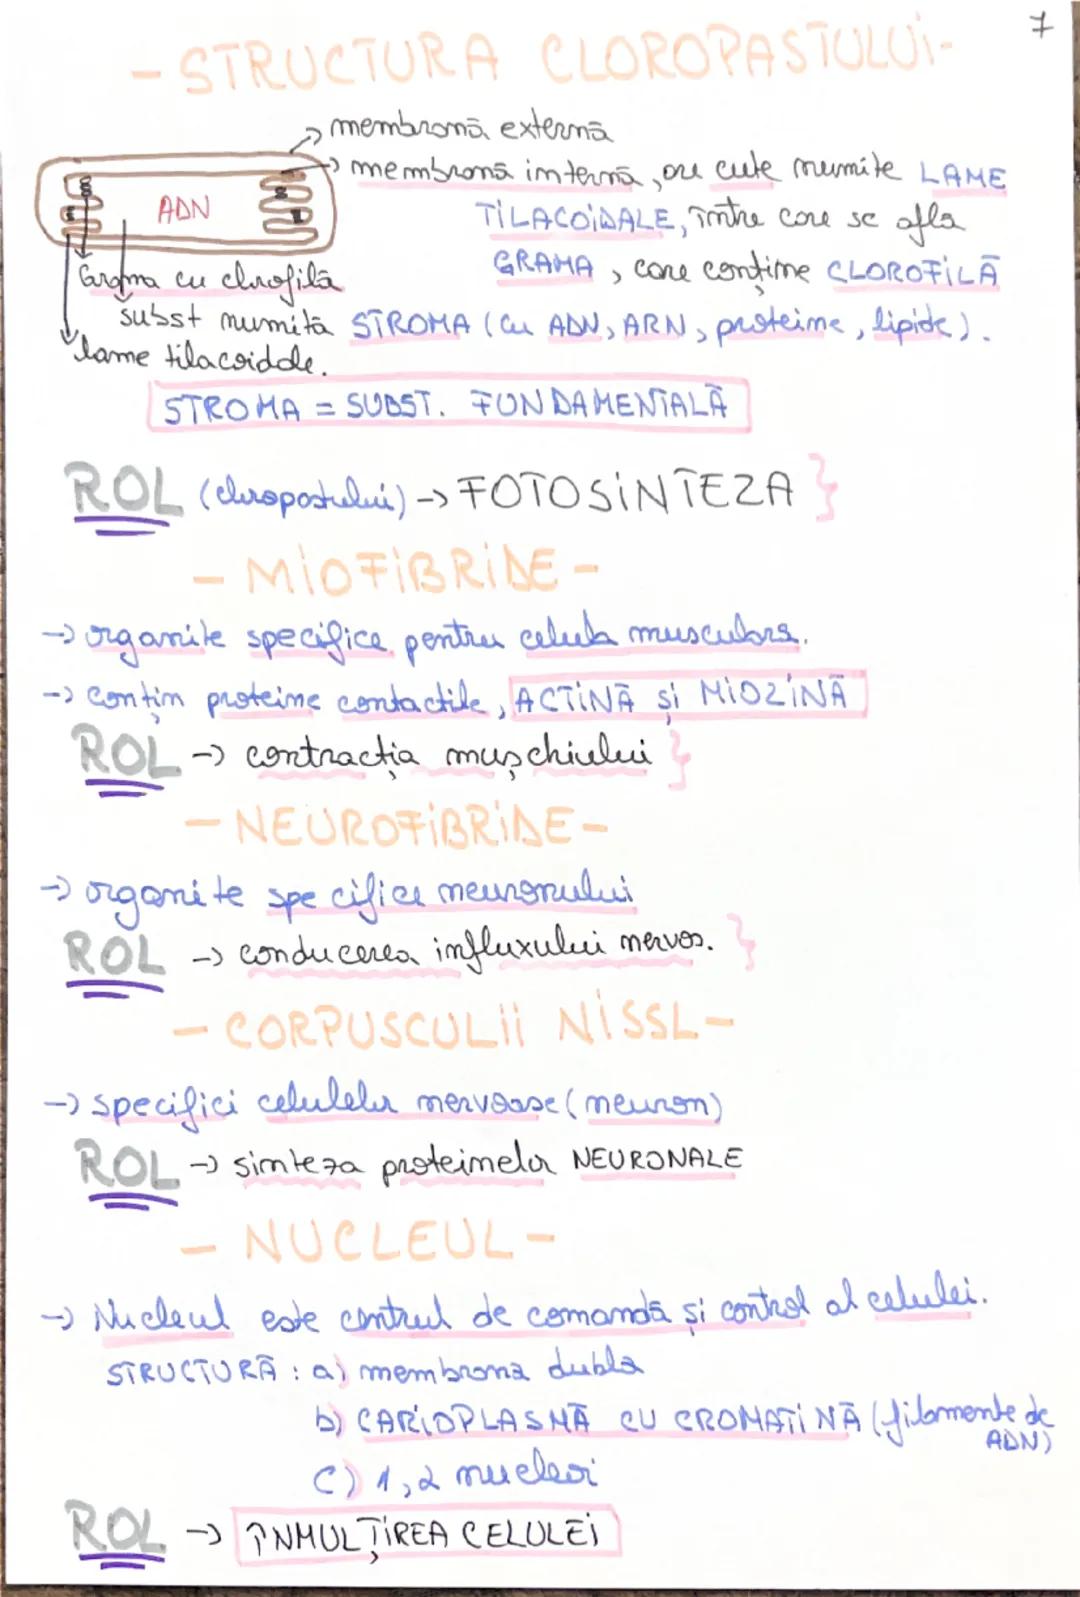 7
- STRUCTURA CLOROPASTULUI -
membrană externă
membrană internă, are cute numite LAME
ADN
TILACOIDALE, între care se afla
GRAMA, care conține CLOROFILĂ
Grama cu clorofilă
subst numită STROMA (cu ADN, ARN, proteine, lipide).
lame tilacoidale.
STROMA = SUBST. FUNDAMENTALĂ
ROL (cloropastului) -> FOTOSINTEZA }
- MIOFIBRIDE -
-> organite specifice pentru celula musculara.
-> conțin proteine contactile, ACTINĂ și MIOZINĂ
ROL -> contracția mușchiului }
- NEUROFIBRIDE -
-> organite specifice neuronului
ROL -> conducerea influxului nervos. }
- CORPUSCULII NISSL -
-> specifici celulelor nervoase (neuron)
ROL -> sinteza proteinelor NEURONALE
- NUCLEUL -
-> Nucleul este centrul de comandă și control al celulei.
STRUCTURĂ : a) membrana dubla
b) CARIOPLASMĂ CU CROMATINĂ (filamente de
ADN)
c) 1, 2 nucleoi
ROL -> ÎNMULȚIREA CELULEI